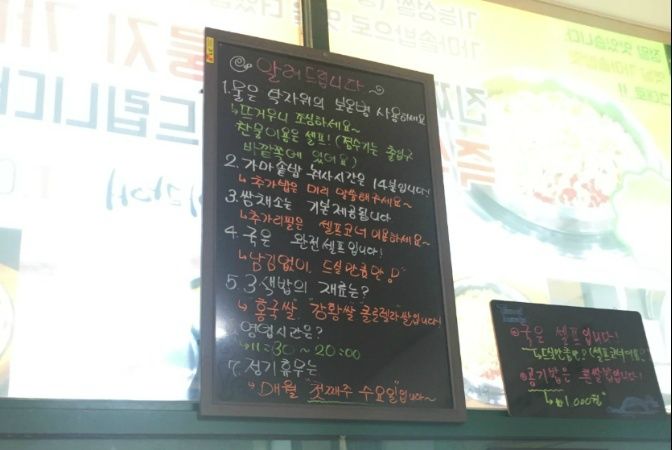 알려드립니다~
1. 물은 탁자위의 보온병 사용하세요
↳ 뜨거우니 조심하세요~
찬물이용은 셀프! (정수기는 출입구
바깥쪽에 있어요)
2. 가마솥밥 취사시간은 14분입니다!
↳ 추가밥은 미리 말씀해주세요~
3. 쌈채소는 기본제공됩니다
↳ 추가리필은 셀프코너 이용하세요~
4. 국은 완전셀프입니다!
↳ 남김없이, 드실만큼만
5. 3색밥의 재료는?
↳ "홍국쌀" "강황쌀" "클로렐라"쌀입니다!
영업시간은?
↳ 11:30 ~ 20:00
7. 정기휴무는
↳ 매월 "첫째주 수요일"입니다~
국은 셀프입니다!
↳ 드실만큼만? (셀프코너에요?)
공기밥은 흰쌀밥입니다!
↳ ₩1,000원